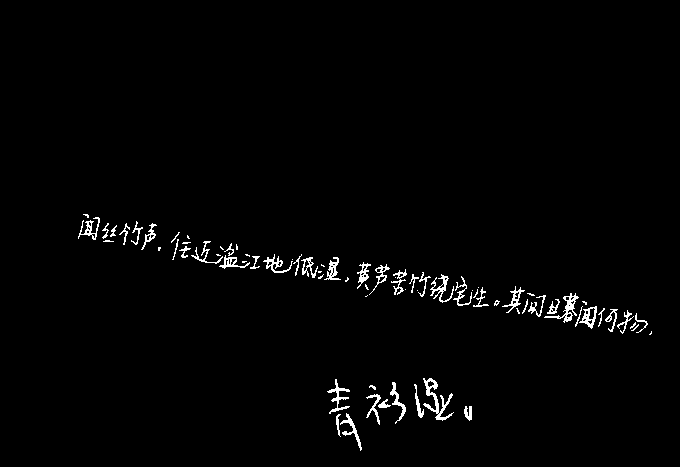 闻丝竹声，住近湓江地低湿，黄芦苦竹绕宅生。其间旦暮闻何物，
青衫湿。